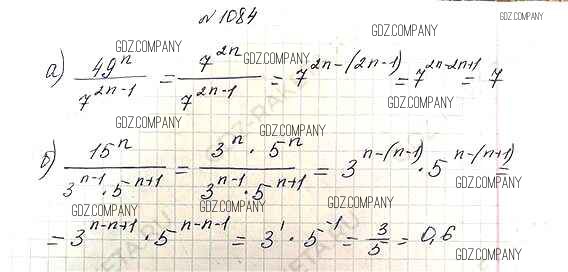 № 1084
GDZ.COMPANY
GDZ.COMPANY
GDZ.COMPANY
GDZ.COMPANY
а) 49ⁿ / 7²ⁿ⁻¹ = 7²ⁿ / 7²ⁿ⁻¹ = 7²ⁿ⁻⁽²ⁿ⁻¹⁾ = 7²ⁿ⁻²ⁿ⁺¹ = 7
GDZ.COMPANY
GDZ.COMPANY
GDZ.COMPANY
GDZ.COMPANY
б) 15ⁿ / 3ⁿ⁻¹ · 5ⁿ⁺¹ = 3ⁿ · 5ⁿ / 3ⁿ⁻¹ · 5ⁿ⁺¹ = 3ⁿ⁻⁽ⁿ⁻¹⁾ · 5ⁿ⁻⁽ⁿ⁺¹⁾ =
GDZ.COMPANY
GDZ.COMPANY
GDZ.COMPANY
= 3ⁿ⁻ⁿ⁺¹ · 5ⁿ⁻ⁿ⁻¹ = 3¹ · 5⁻¹ = 3/5 = 0,6
GDZ.COMPANY
GDZ.COMPANY